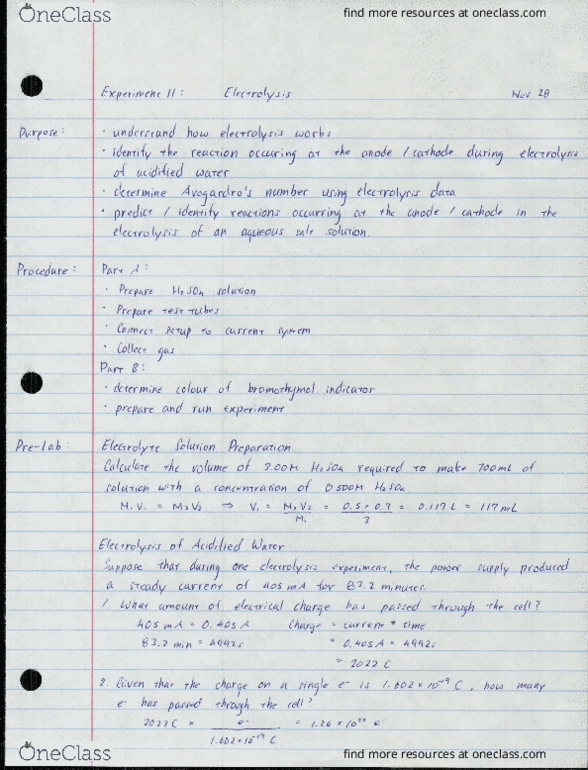 OneClass find more resources at oneclass.com
Experiment 11: Electrolysis Nov 28
Purpose: · understand how electrolysis works
· identify the reaction occuring at the anode / cathode during electrolysis
of acidified water
· determine Avogardro's number using electrolysis data
· predict / identify reactions occurring at the anode / cathode in the
electrolysis of an aqueous salt solution.
Procedure: Part A:
· Prepare H₂SO₄ solution
· Prepare test tubes
· Connect setup to current system
· Collect gas
Part B:
· determine colour of bromothymol indicator
· prepare and run experiment
Pre-Lab: Electrolyte Solution Preparation
Calculate the volume of 3.00M H₂SO₄ required to make 700mL of
solution with a concentration of 0.500M H₂SO₄
M₁V₁ = M₂V₂ ⇒ V₁ = M₂V₂ / M₁ = 0.5 × 0.7 / 3 = 0.117 L = 117 mL
Electrolysis of Acidified Water
Suppose that during one electrolysis experiment, the power supply produced
a steady current of 405 mA for 83.2 minutes.
1. What amount of electrical charge has passed through the cell?
405 mA = 0.405 A Charge = current * time
83.2 min = 4992s = 0.405A × 4992s
= 2022 C
2. Given that the charge on a single e⁻ is 1.602 × 10⁻¹⁹ C, how many
e⁻ has passed through the cell?
2022 C × e⁻ / 1.602 × 10⁻¹⁹ C = 1.26 × 10²² e⁻
OneClass find more resources at oneclass.com